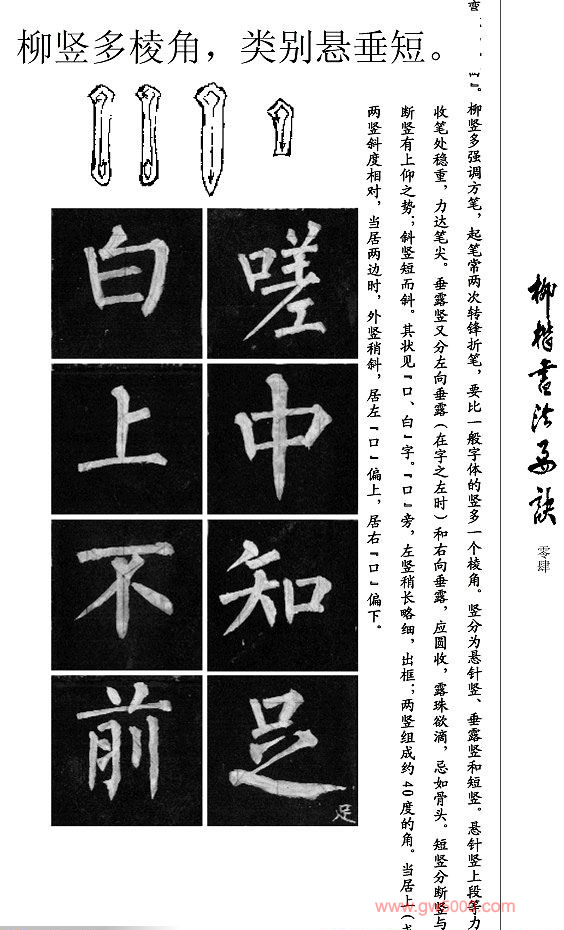 柳竖多棱角，类别悬垂短。
柳楷書法要訣
零肆
柳竖多强调方笔，起笔常两次转锋折笔，要比一般字体的竖多一个棱角。竖分为悬针竖、垂露竖和短竖。悬针竖上段等力
收笔处稳重，力达笔尖。垂露竖又分左向垂露（在字之左时）和右向垂露，应圆收，露珠欲滴，忌如骨头。短竖分断竖与
断竖有上仰之势；斜竖短而斜。其状见『口、白』字。『口』旁，左竖稍长略细，出框；两竖组成约40度的角。当居上（
两竖斜度相对，当居两边时，外竖稍斜，居左『口』偏上，居右『口』偏下。
嗟中知足
足
白上不前